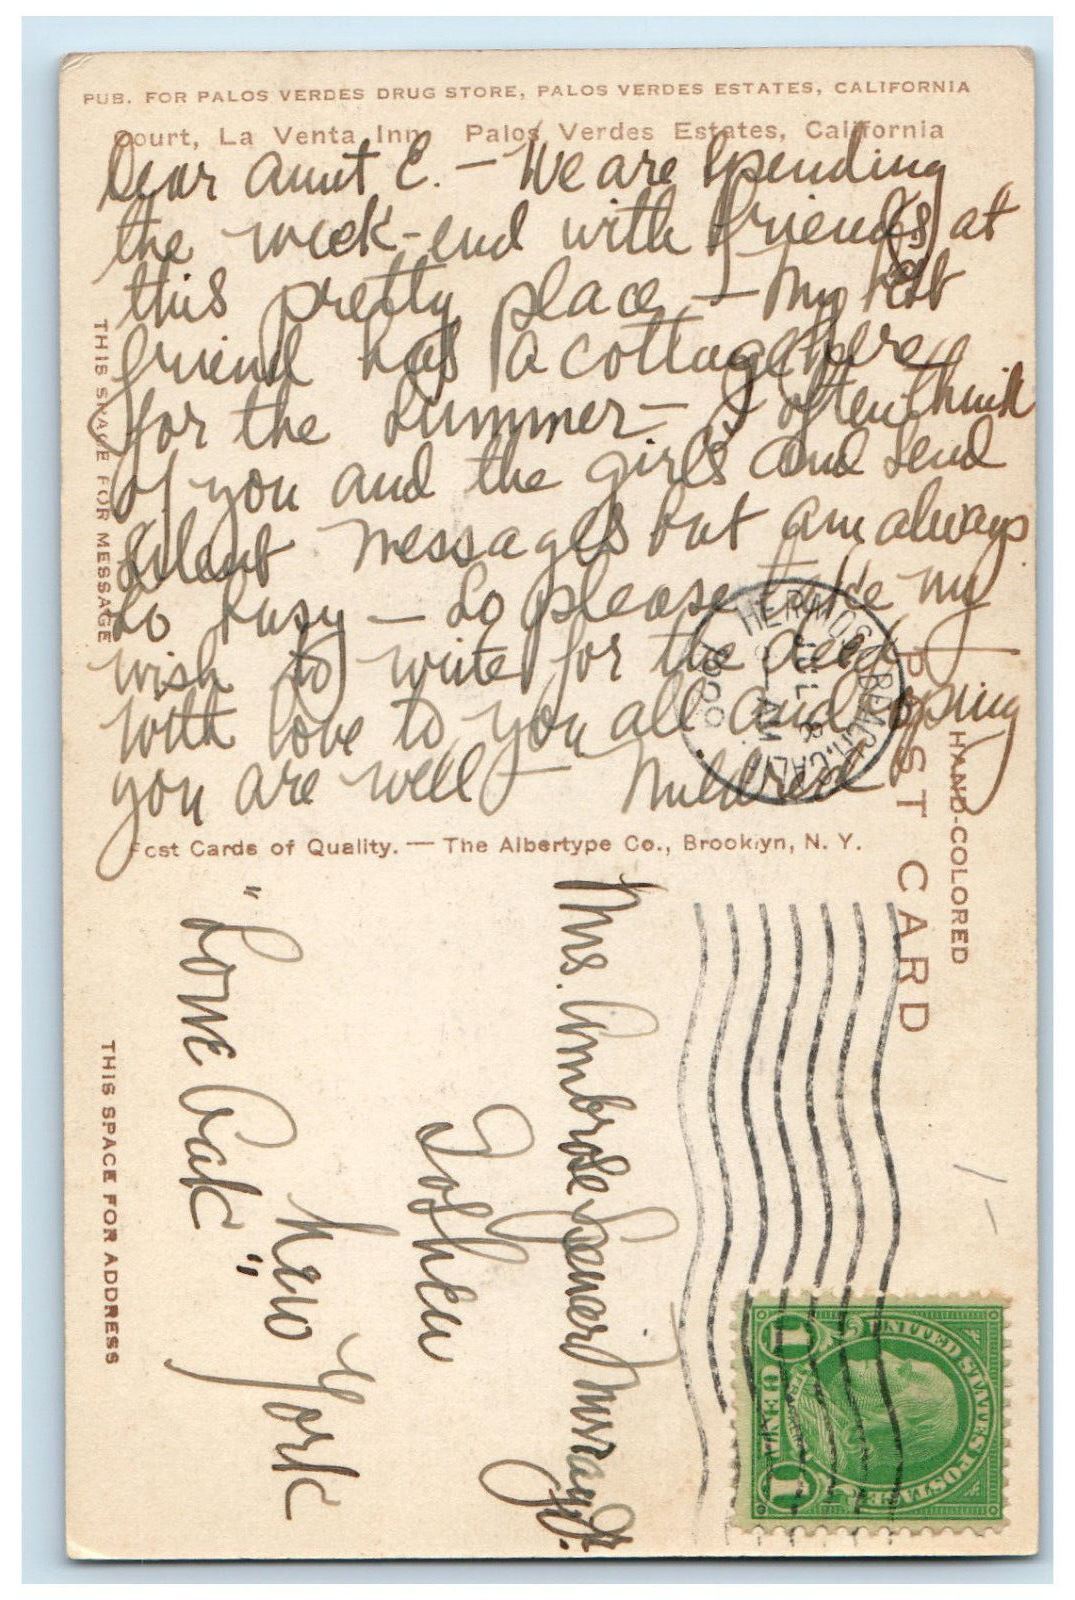 PUB. FOR PALOS VERDES DRUG STORE, PALOS VERDES ESTATES, CALIFORNIA
Court, La Venta Inn, Palos Verdes Estates, California
Dear Aunt E. – We are spending
the week-end with friends at
this pretty place – My best
friend has a cottage here
for the summer – I often think
of you and the girls and send
silent messages but am always
so busy – So please take my
wish to write for the deed –
With love to you all and hoping
you are well – Mildred
THIS SPACE FOR MESSAGE
Post Cards of Quality. — The Albertype Co., Brooklyn, N. Y.
POST CARD
HAND-COLORED
HERMOSA BEACH, CALIF.
JUL 18
AM
Mrs. Ambrose Spencer Murray Jr.
Goshen
New York
"Lone Oak"
THIS SPACE FOR ADDRESS
UNITED STATES POSTAGE
FRANKLIN
1 ONE 1